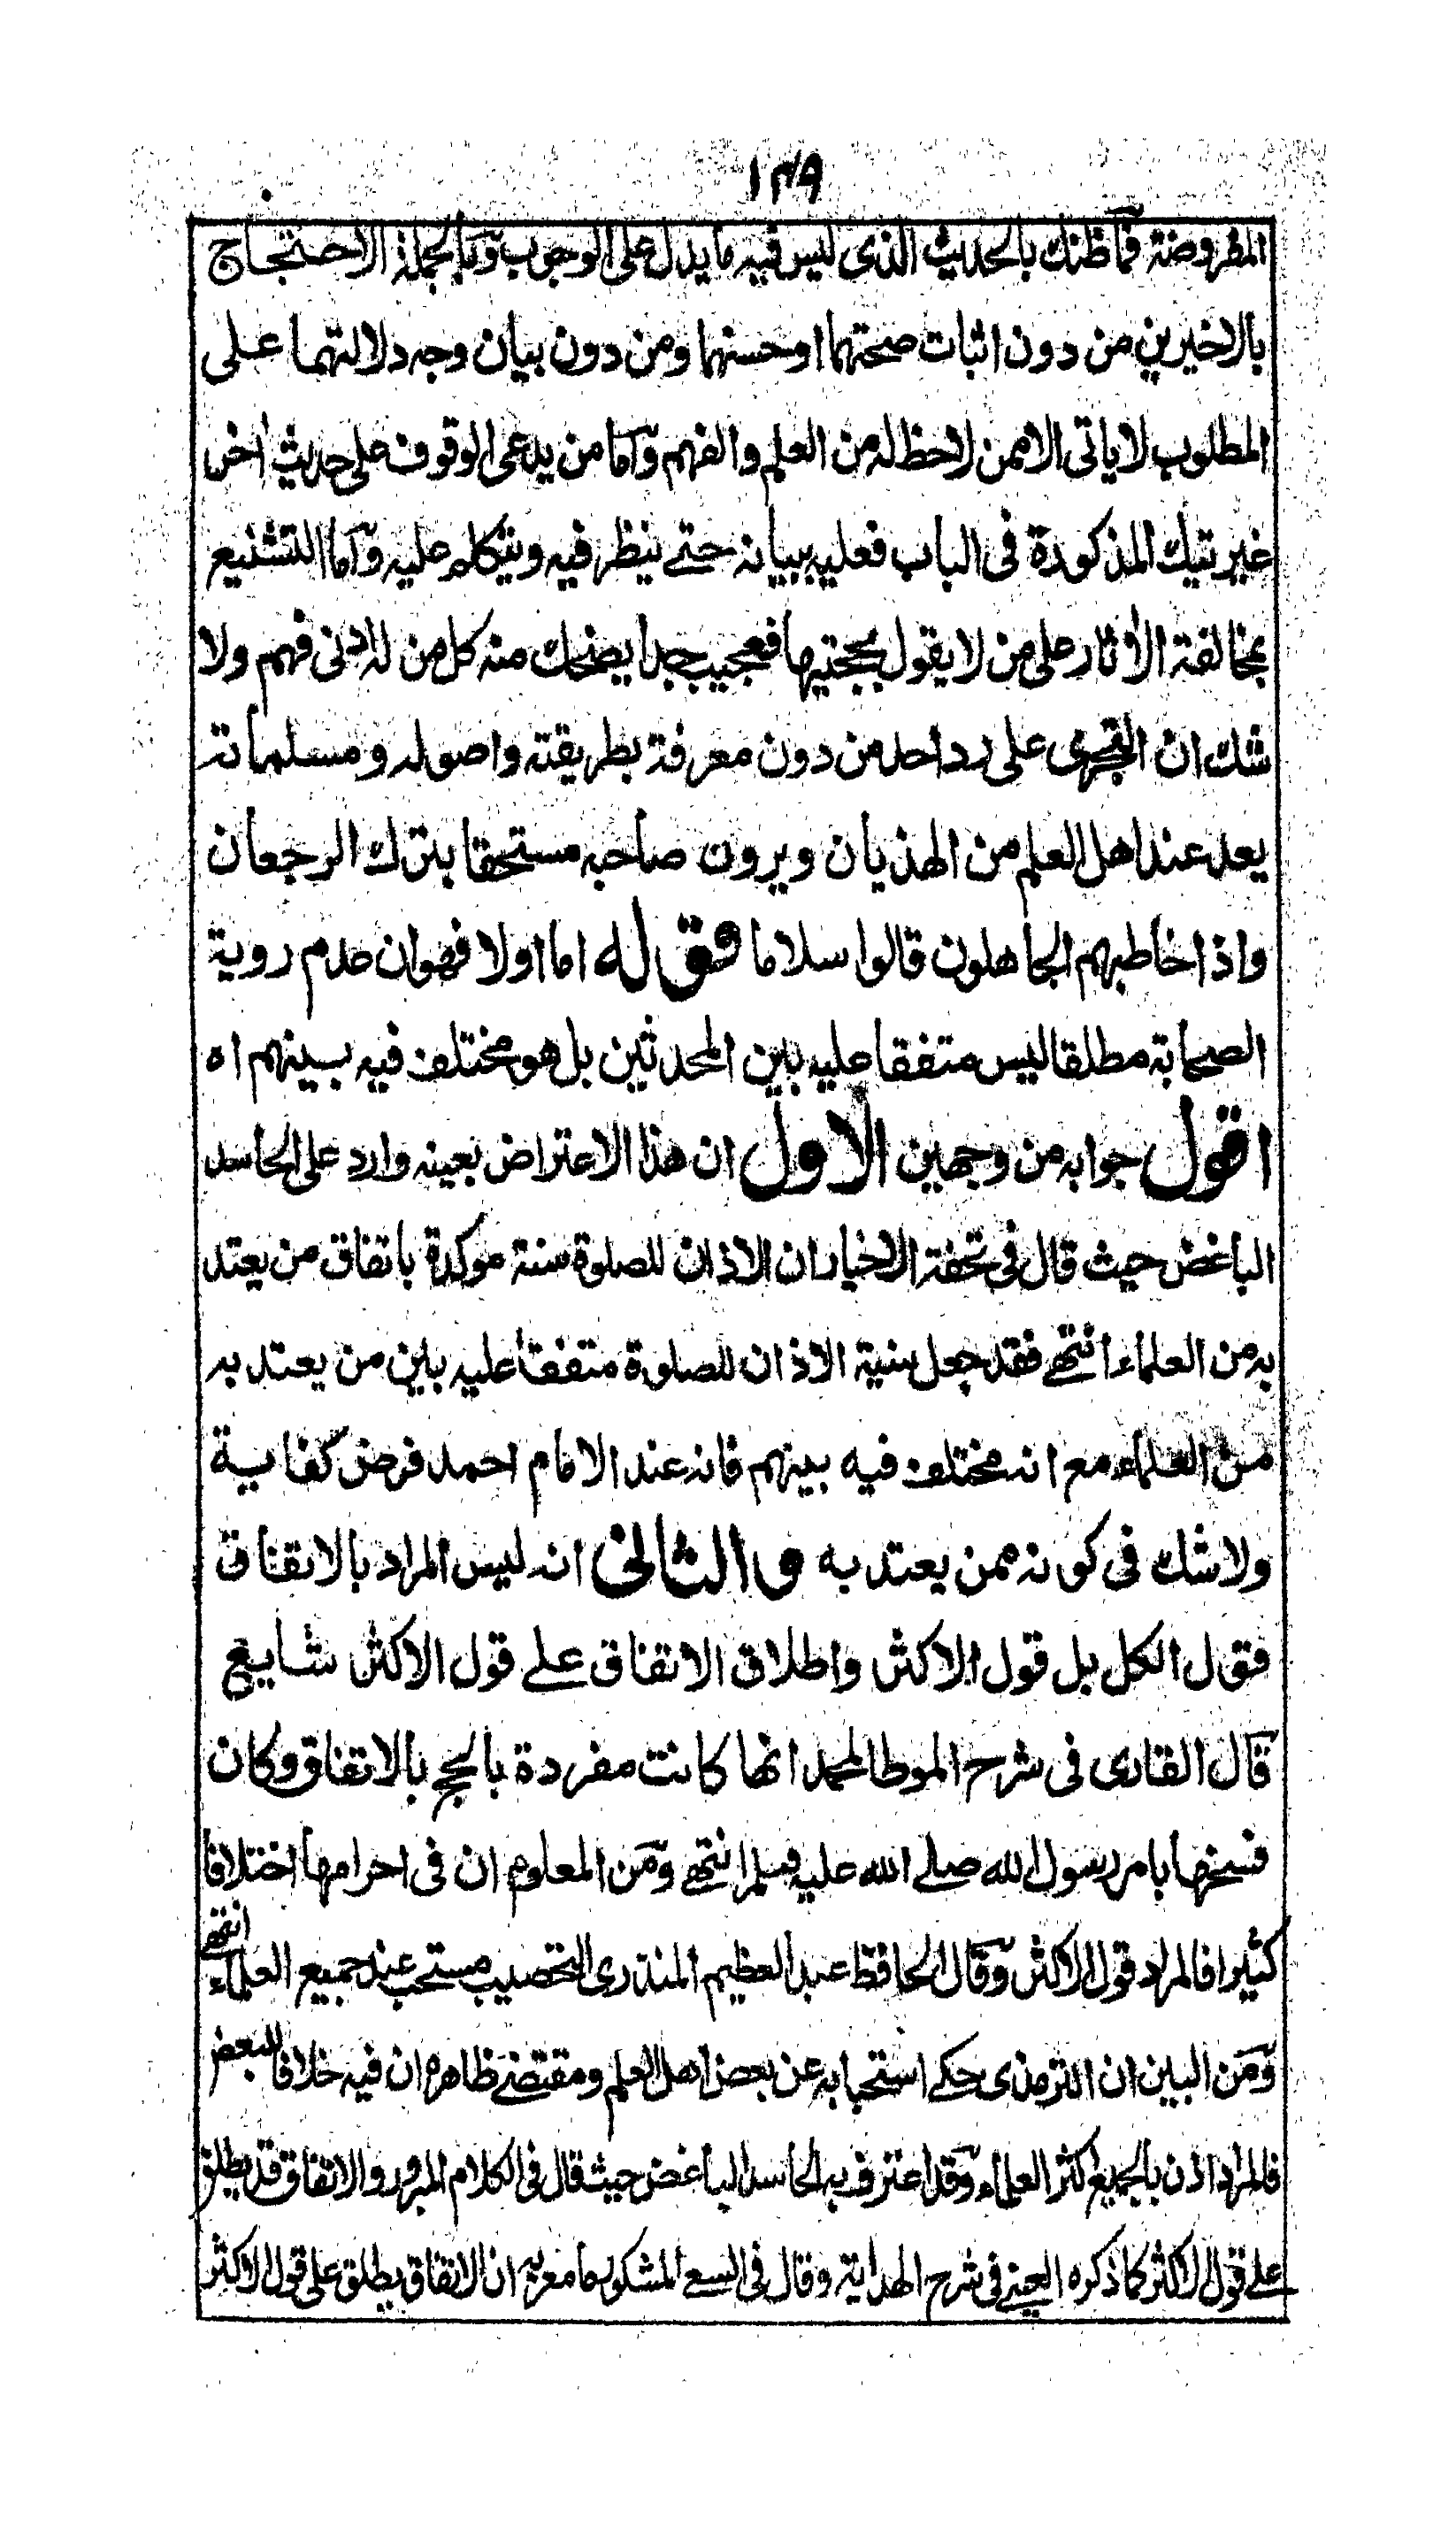 ١٣٩
المفروضة فما ظنك بالحديث الذى ليس فيه ما يدل على الوجوب وبالجملة الاحتجاج
بالاخيرين من دون اثبات صحتهما اوحسنهما ومن دون بيان وجه دلالتهما على
المطلوب لا ياتى الا ممن لاحظ له من العلم والفهم واما من يدعى الوقوف على حديث اخر
غير تيك المذكورة فى الباب فعليه ببيانه حتے ينظر فيه ويتكلم عليه واما التشنيع
بمخالفة الاثار على من لا يقول بحجتيها فعجيب جدا يضحك منه كل من له ادنى فهم ولا
شك ان التجرى على رد احد من دون معرفة بطريقته واصوله ومسلماته
يعد عند اهل العلم من الهذيان ويرون صاحبه مستحقا بترك الرجعان
واذا خاطبهم الجاهلون قالوا سلاما قوله اما اولا فهو ان عدم روية
الصحابة مطلقا ليس متفقا عليه بين المحدثين بل هو مختلف فيه بينهم اه
اقول جوابه من وجهين الاول ان هذا الاعتراض بعينه وارد على الحاسد
الباغض حيث قال فى تحفة الاخيار ان الاذان للصلوة سنة موكدة باتفاق من يعتد
به من العلماء انتهے فقد جعل سنية الاذان للصلوة متفقا عليه بين من يعتد به
من العلماء مع انه مختلف فيه بينهم فانه عند الامام احمد فرض كفاية
ولا شك فى كونه ممن يعتد به والثانى انه ليس المراد بالاتفاق
قول الكل بل قول الاكثر واطلاق الاتفاق علے قول الاكثر شايع
قال القارى فى شرح الموطا لمحمد انها كانت مفردة بالحج بالاتفاق وكان
فسخها بامر رسول الله صلے الله عليه وسلم انتهے ومن المعلوم ان فى احرامها اختلافا
كثيرا فالمراد قول الاكثر وقال الحافظ عبد العظيم المنذرى التحصيب مستحب عند جميع العلماء انتهے
ومن البين ان الترمذى حكے استحبابه عن بعض اهل العلم ومقتضے ظاهره ان فيه خلافا للبعض
فالمراد اذن بالجميع اكثر العلماء وقد اعترف به الحاسد الباغض حيث قال فى الكلام المبرور والاتفاق قد يطلق
علے قول الاكثر كما ذكره العينے فى شرح الهداية وقال فى السعى المشكور ما معربه ان الاتفاق يطلق على قول الاكثر